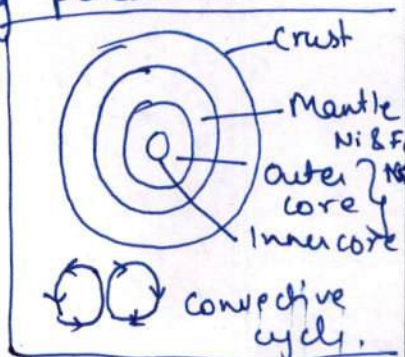 Crust
Mantle
Ni & Fe
Outer
core
Inner core
convective
cycle.